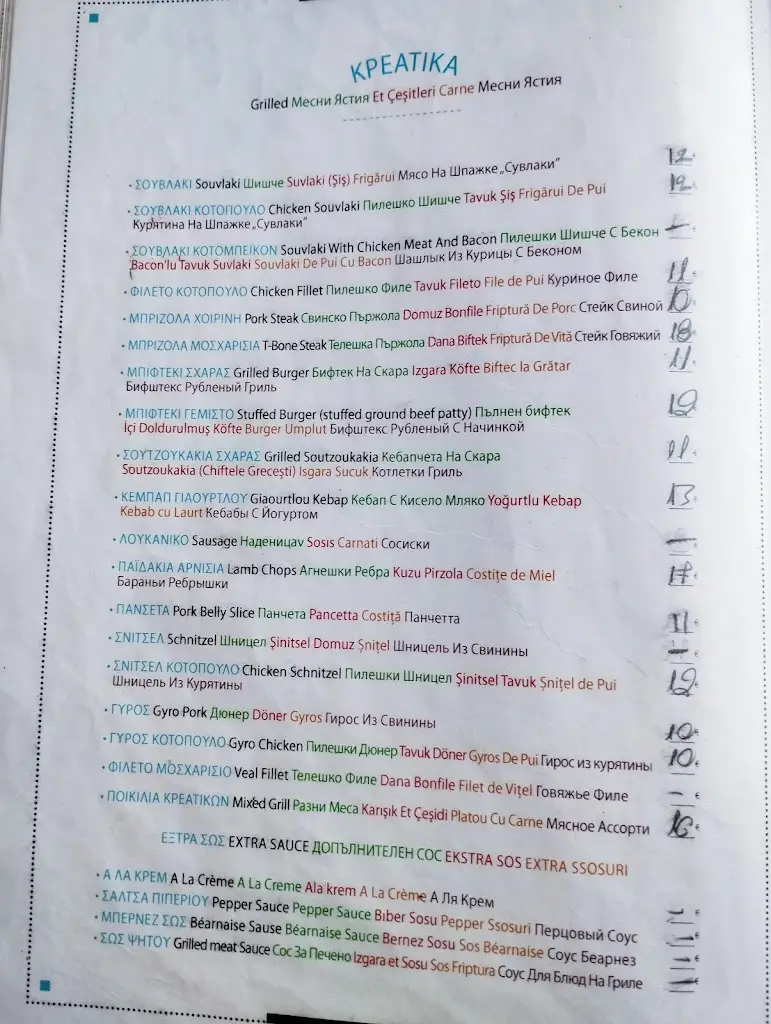 ΚΡΕΑΤΙΚΑ
Grilled Месни Ястия Et Çeşitleri Carne Месни Ястия
• ΣΟΥΒΛΑΚΙ Souvlaki Шишче Suvlaki (Şiş) Frigărui Мясо На Шпажке „Сувлаки“ 12€
• ΣΟΥΒΛΑΚΙ ΚΟΤΟΠΟΥΛΟ Chicken Souvlaki Пилешко Шишче Tavuk Şiş Frigărui De Pui 12€
Курятина На Шпажке „Сувлаки“
• ΣΟΥΒΛΑΚΙ ΚΟΤΟΜΠΕΪΚΟΝ Souvlaki With Chicken Meat And Bacon Пилешки Шишче С Бекон –
Bacon'lu Tavuk Suvlaki Souvlaki De Pui Cu Bacon Шашлык Из Курицы С Беконом
• ΦΙΛΕΤΟ ΚΟΤΟΠΟΥΛΟ Chicken Fillet Пилешко Филе Tavuk Fileto File de Pui Куриное Филе 11€
• ΜΠΡΙΖΟΛΑ ΧΟΙΡΙΝΗ Pork Steak Свинско Пържола Domuz Bonfile Friptură De Porc Стейк Свиной 10€
• ΜΠΡΙΖΟΛΑ ΜΟΣΧΑΡΙΣΙΑ T-Bone Steak Телешка Пържола Dana Biftek Friptură De Vită Стейк Говяжий 18€
• ΜΠΙΦΤΕΚΙ ΣΧΑΡΑΣ Grilled Burger Бифтек На Скара Izgara Köfte Biftec la Grătar 11€
Бифштекс Рубленый Гриль
• ΜΠΙΦΤΕΚΙ ΓΕΜΙΣΤΟ Stuffed Burger (stuffed ground beef patty) Пълнен бифтек 12€
İçi Doldurulmuş Köfte Burger Umplut Бифштекс Рубленый С Начинкой
• ΣΟΥΤΖΟΥΚΑΚΙΑ ΣΧΑΡΑΣ Grilled Soutzoukakia Кебапчета На Скара 11€
Soutzoukakia (Chiftele Greceşti) Isgara Sucuk Котлетки Гриль
• ΚΕΜΠΑΠ ΓΙΑΟΥΡΤΛΟΥ Giaourtlou Kebap Кебап С Кисело Мляко Yoğurtlu Kebap 13€
Kebab cu Laurt Кебабы С Йогуртом
• ΛΟΥΚΑΝΙΚΟ Sausage Наденицаv Sosıs Carnati Сосиски –
• ΠΑΪΔΑΚΙΑ ΑΡΝΙΣΙΑ Lamb Chops Агнешки Ребра Kuzu Pirzola Costiţe de Miel 17€
Бараньи Ребрышки
• ΠΑΝΣΕΤΑ Pork Belly Slice Панчета Pancetta Costiţă Панчетта 11€
• ΣΝΙΤΣΕΛ Schnitzel Шницел Şinitsel Domuz Şniţel Шницель Из Свинины –€
• ΣΝΙΤΣΕΛ ΚΟΤΟΠΟΥΛΟ Chicken Schnitzel Пилешки Шницел Şinitsel Tavuk Şniţel de Pui 12€
Шницель Из Курятины
• ΓΥΡΟΣ Gyro Pork Дюнер Döner Gyros Гирос Из Свинины 10€
• ΓΥΡΟΣ ΚΟΤΟΠΟΥΛΟ Gyro Chicken Пилешки Дюнер Tavuk Döner Gyros De Pui Гирос из курятины 10€
• ΦΙΛΕΤΟ ΜΟΣΧΑΡΙΣΙΟ Veal Fillet Телешко Филе Dana Bonfile Filet de Viţel Говяжье Филе –€
• ΠΟΙΚΙΛΙΑ ΚΡΕΑΤΙΚΩΝ Mixed Grill Разни Меса Karışık Et Çeşidi Platou Cu Carne Мясное Ассорти 16€
ΕΞΤΡΑ ΣΩΣ EXTRA SAUCE ДОПЪЛНИТЕЛЕН СОС EKSTRA SOS EXTRA SSOSURI
• Α ΛΑ ΚΡΕΜ A La Crème A La Creme Ala krem A La Crème А Ля Крем –€
• ΣΑΛΤΣΑ ΠΙΠΕΡΙΟΥ Pepper Sauce Pepper Sauce Bıber Sosu Pepper Ssosuri Перцовый Соус –€
• ΜΠΕΡΝΕΖ ΣΩΣ Béarnaise Sause Béarnaise Sauce Bernez Sosu Sos Béarnaise Соус Беарнез –€
• ΣΩΣ ΨΗΤΟΥ Grilled meat Sauce Сос За Печено Izgara et Sosu Sos Friptura Соус Для Блюд На Гриле –€